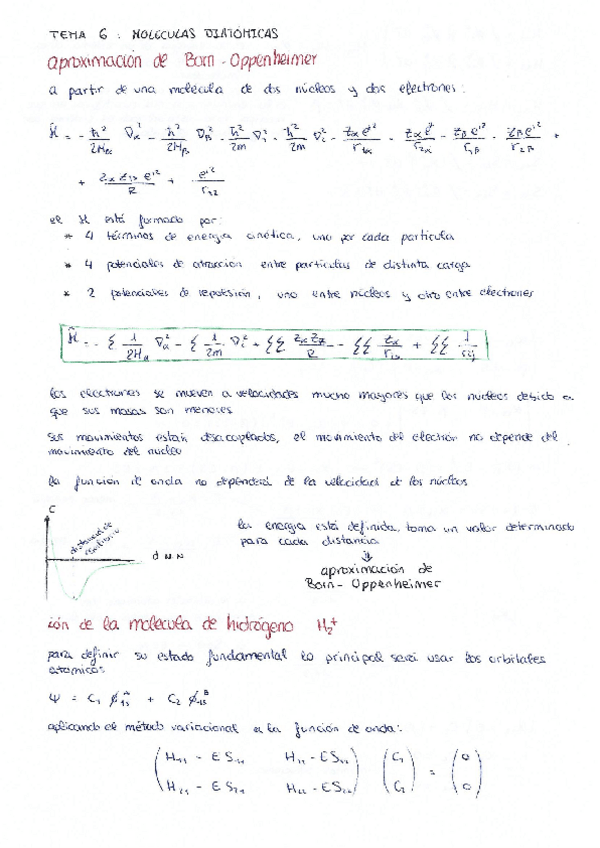 TEMA 6 : MOLÉCULAS DIATÓMICAS
aproximación de Born-Oppenheimer
a partir de una molécula de dos núcleos y dos electrones:
Ĥ = - ħ²/2Mα ∇²α - ħ²/2Mβ ∇²β - ħ²/2m ∇²₁ - ħ²/2m ∇²₂ - Zα e'²/r1α - Zα e'²/r2α - Zβ e'²/r1β - Zβ e'²/r2β +
+ Zα Zβ e'²/R + e'²/r12
el Ĥ está formado por:
* 4 términos de energía cinética, uno por cada partícula
* 4 potenciales de atracción entre partículas de distinta carga
* 2 potenciales de repulsión, uno entre núcleos y otro entre electrones
Ĥ = - Σ 1/2Mα ∇²α - Σ 1/2m ∇²i + ΣΣ Zα Zβ/R - ΣΣ Zα/riα + ΣΣ 1/rij
los electrones se mueven a velocidades mucho mayores que los núcleos debido a
que sus masas son menores
sus movimientos están desacoplados, el movimiento del electrón no depende del
movimiento del núcleo
la función de onda no dependerá de la velocidad de los núcleos
E
distancia de
equilibrio
d N N
la energía está definida, toma un valor determinado
para cada distancia
⇓
aproximación de
Born-Oppenheimer
ión de la molécula de hidrógeno H₂⁺
para definir su estado fundamental lo principal será usar los orbitales
atómicos
Ψ = C₁ ϕ1sᴬ + C₂ ϕ1sᴮ
aplicando el método variacional a la función de onda:
( H₁₁ - ES₁₁ H₁₂ - ES₁₂ ) ( C₁ ) = ( 0 )
( H₂₁ - ES₂₁ H₂₂ - ES₂₂ ) ( C₂ ) ( 0 )